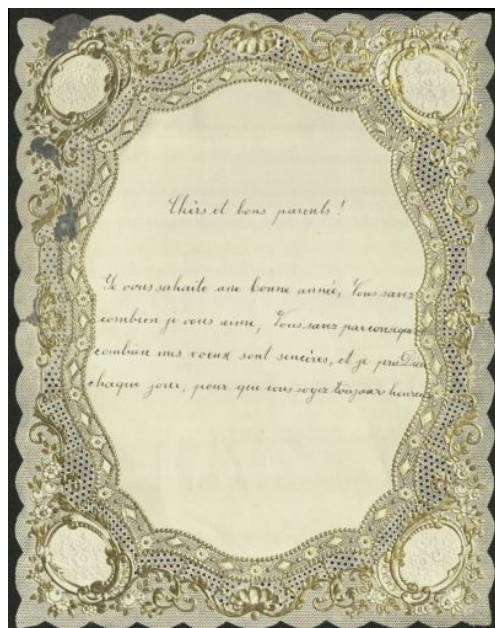 Chèrs et bons parents!
Je vous suhaite une bonne année, Vous savez
combien je vous aime, Vous savez par conséquent
combien mes voeux sont sencères, et je prie Dieu
chaque jour, pour que vous soyez toujours heureux